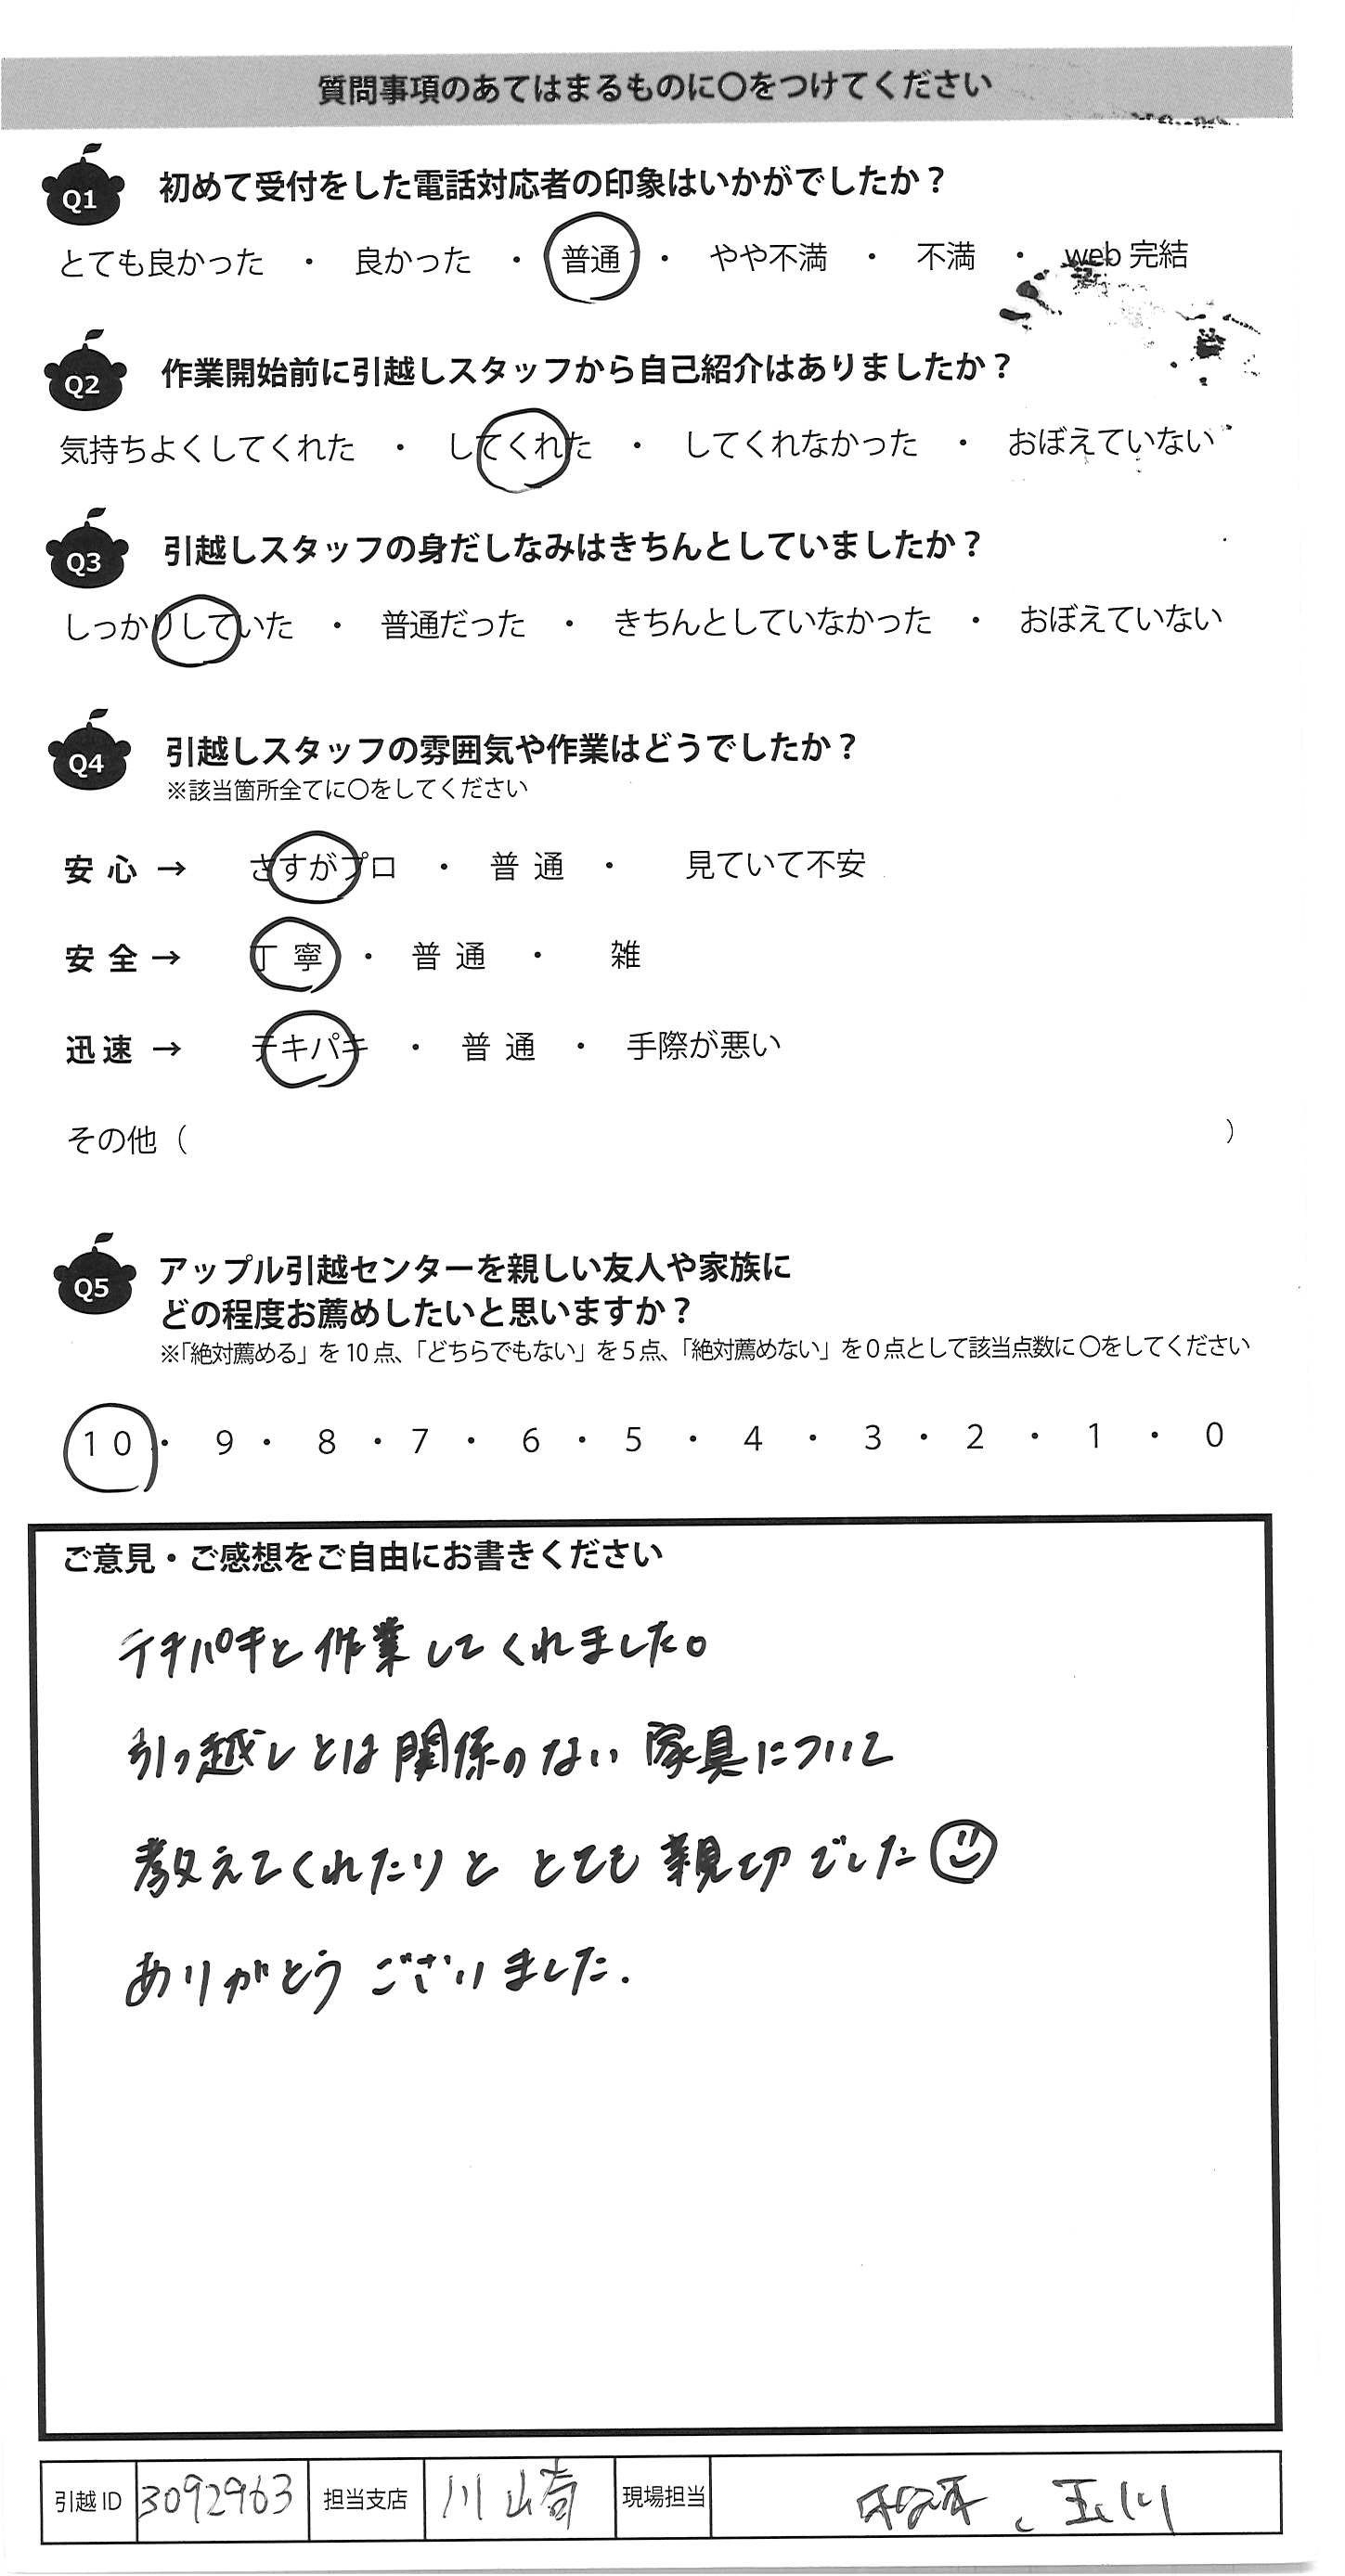 質問事項のあてはまるものに〇をつけてください
Q1 初めて受付をした電話対応者の印象はいかがでしたか？
とても良かった ・ 良かった ・ 普通 ・ やや不満 ・ 不満 ・ web 完結
Q2 作業開始前に引越しスタッフから自己紹介はありましたか？
気持ちよくしてくれた ・ してくれた ・ してくれなかった ・ おぼえていない
Q3 引越しスタッフの身だしなみはきちんとしていましたか？
しっかりしていた ・ 普通だった ・ きちんとしていなかった ・ おぼえていない
Q4 引越しスタッフの雰囲気や作業はどうでしたか？
※該当箇所全てに〇をしてください
安心 → さすがプロ ・ 普通 ・ 見ていて不安
安全 → 丁寧 ・ 普通 ・ 雑
迅速 → テキパキ ・ 普通 ・ 手際が悪い
その他（ ）
Q5 アップル引越センターを親しい友人や家族に
どの程度お薦めしたいと思いますか？
※「絶対薦める」を10点、「どちらでもない」を5点、「絶対薦めない」を0点として該当点数に〇をしてください
10 ・ 9 ・ 8 ・ 7 ・ 6 ・ 5 ・ 4 ・ 3 ・ 2 ・ 1 ・ 0
ご意見・ご感想をご自由にお書きください
テキパキと作業してくれました。
引っ越しとは関係のない家具について
教えてくれたりと とても親切でした
ありがとうございました.
引越ID 3092963 担当支店 川崎 現場担当 、玉川